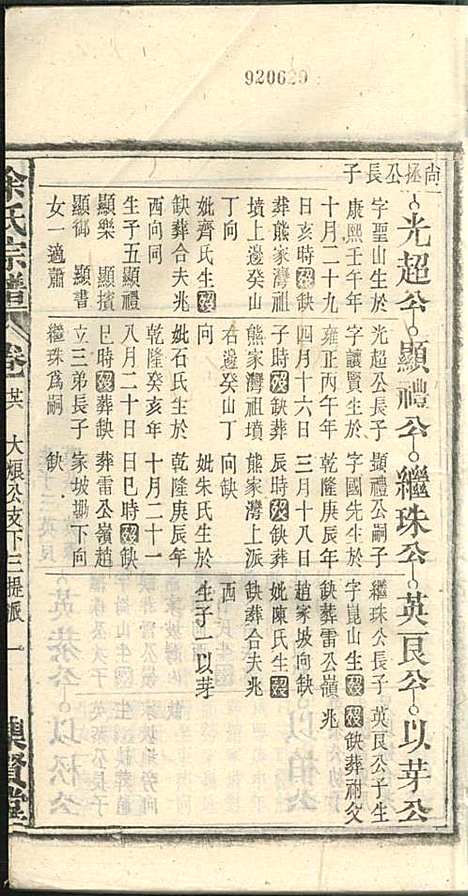 920620
尚拯公長子
光超公 顯禮公 繼珠公 英艮公 以芽公
字聖山生於
康熙壬午年
十月二十九
日亥時歿缺
葬熊家灣祖
墳上邊癸山
丁向
妣齊氏生歿
缺葬合夫兆
西向同
生子五顯禮
顯樂 顯擯
顯御 顯書
女一適蕭
光超公長子
字讓賢生於
雍正丙午年
四月十六日
子時歿缺葬
熊家灣祖墳
右邊癸山丁
向
妣石氏生於
乾隆癸亥年
八月二十日
巳時歿葬缺
立三弟長子
繼珠爲嗣
顯禮公嗣子
字國先生於
乾隆庚辰年
三月十八日
辰時歿缺葬
熊家灣上派
向缺
妣朱氏生於
乾隆庚辰年
十月二十一
日巳時歿缺
葬雷公嶺趙
家坡塲下向
缺
繼珠公長子
字崑山生歿
缺葬雷公嶺
趙家坡向缺
妣陳氏生歿
缺葬合夫兆
西
生子一以芽
英艮公子生
歿缺葬祔父
兆
余氏宗譜 卷 廿六 大烺公支下三提派 一 集賢堂